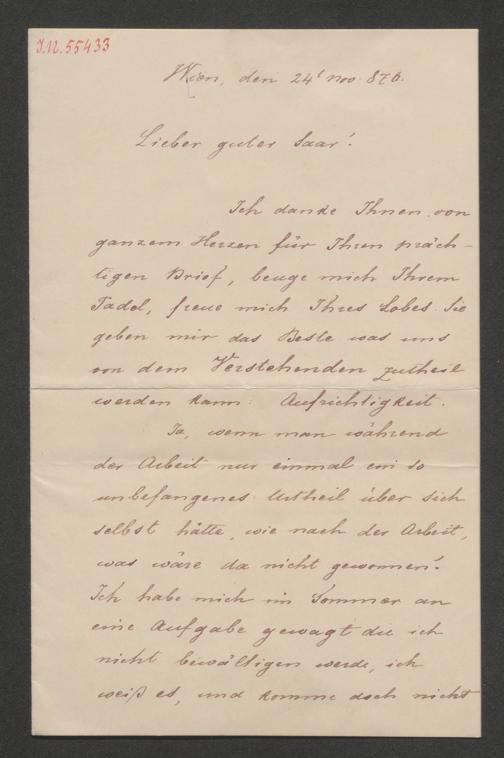 J.N. 55433
Wien, den 24t nov. 876.
Lieber guter Saar!
Ich danke Ihnen von
ganzem Herzen für Ihren präch-
tigen Brief, beuge mich Ihrem
Tadel, freue mich Ihres Lobes. Sie
geben mir das Beste was uns
von dem Verstehenden zutheil
werden kann: Aufrichtigkeit.
Ja, wenn man während
der Arbeit nur einmal ein so
unbefangenes Urtheil über sich
selbst hätte, wie nach der Arbeit,
was wäre da nicht gewonnen!
Ich habe mich im Sommer an
eine Aufgabe gewagt die ich
nicht bewältigen werde, ich
weiß es, und komme doch nicht